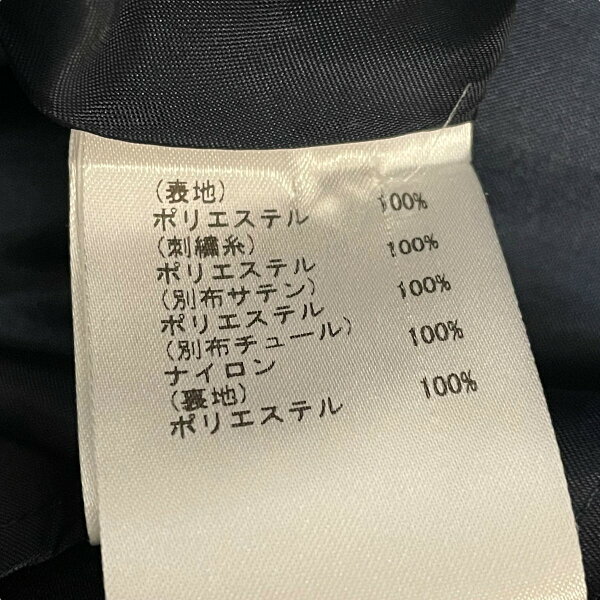 (表地)
ポリエステル 100%
(刺繡糸)
ポリエステル 100%
(別布サテン)
ポリエステル 100%
(別布チュール)
ナイロン 100%
(裏地)
ポリエステル 100%